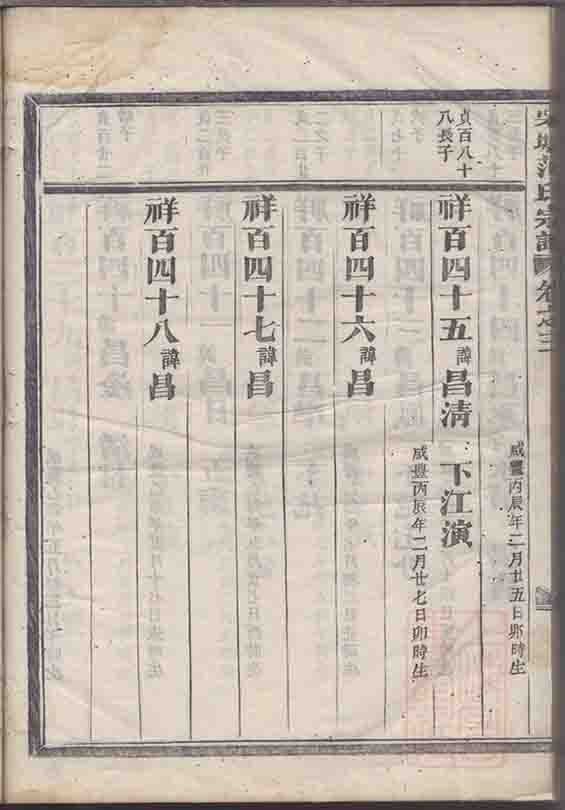 氏宗譜
咸豐丙辰年二月廿五日卯時生
貞百八十
八長子
祥百四十五諱昌清 下江演
咸豐丙辰年二月廿七日卯時生
祥百四十六諱昌
祥百四十七諱昌
祥百四十八諱昌